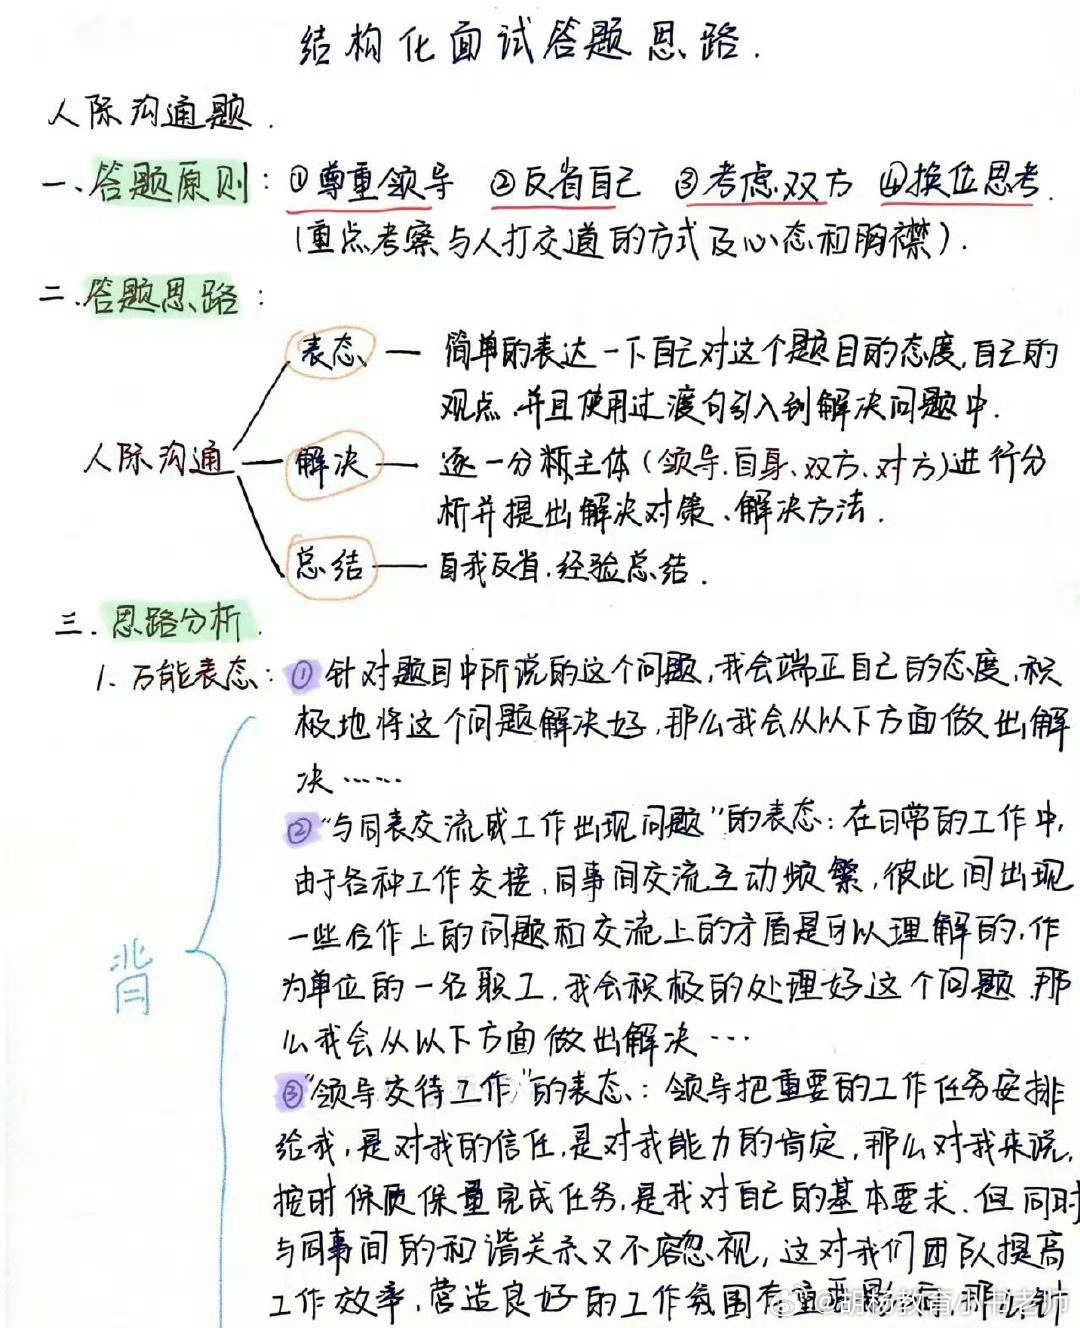 结构化面试答题思路.
人际沟通题.
一、答题原则：①尊重领导 ②反省自己 ③考虑双方 ④换位思考.
（重点考察与人打交道的方式及心态和胸襟）.
二、答题思路：
表态 — 简单的表达一下自己对这个题目的态度,自己的
观点,并且使用过渡句引入到解决问题中.
人际沟通 — 解决 — 逐一分析主体（领导、自身、双方、对方）进行分
析并提出解决对策、解决方法.
总结 — 自我反省.经验总结.
三.思路分析.
1.万能表态：①针对题目中所说的这个问题,我会端正自己的态度,积
极地将这个问题解决好,那么我会从以下方面做出解
决……
②“与同表交流或工作出现问题”的表态：在日常的工作中,
由于各种工作交接、同事间交流互动频繁,彼此间出现
一些合作上的问题和交流上的矛盾是可以理解的,作
为单位的一名职工,我会积极的处理好这个问题,那
么我会从以下方面做出解决…
背
③“领导交待工作”的表态：领导把重要的工作任务安排
给我,是对我的信任,是对我能力的肯定,那么对我来说,
按时保质保量完成任务,是我对自己的基本要求、但同时
与同事间的和谐关系又不容忽视,这对我们团队提高
工作效率,营造良好的工作氛围有重要影响,那么针
@胡杨教育小书老师